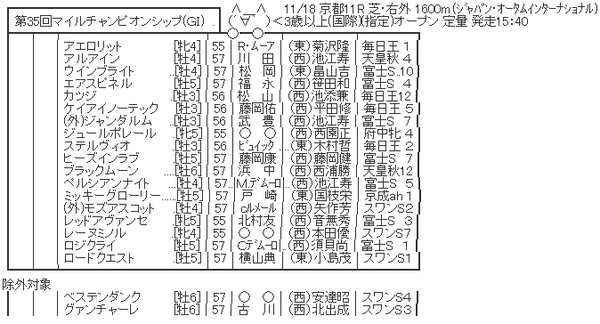 第35回マイルチャンピオンシップ(GI) . 11/18 京都11R 芝・右外 1600m (ジャパン・オータムインターナショナル)
(´∀`) <3歳以上(国際)(指定)オープン 定量 発走15:40
アエロリット [牝4] 55 R・ムーア (東)菊沢隆 毎日王 1
アルアイン [牡4] 57 川 田 (西)池江寿 天皇秋 4
ウインブライト ..[牡4] 57 松 岡 (東)畠山吉 富士S.10
エアスピネル [牡5] 57 福 永 (西)笹田和 富士S 4
カツジ [牡3] 56 松 山 (西)池添兼 毎日王12
ケイアイノーテック [牡3] 56 藤岡佑 (西)平田修 毎日王 5
(外)ジャンダルム [牡3] 56 武 豊 (西)池江寿 富士S 7
ジュールポレール [牝5] 55 ○ ○ (西)西園正 府中牝 4
ステルヴィオ [牡3] 56 ビュイック (東)木村哲 毎日王 2
ヒーズインラブ [牡5] 57 藤岡康 (西)藤岡健 富士S 7
ブラックムーン ....[牡6] 57 浜 中 (西)西浦勝 天皇秋12
ペルシアンナイト [牡4] 57 M.デムーロ (西)池江寿 富士S 5
ミッキーグローリー ....[牡5] 57 戸 崎 (東)国枝栄 京成ah 1
(外)モズアスコット [牡4] 57 Cルメール (西)矢作芳 スワンS2
レッドアヴァンセ [牝5] 55 北村友 (西)音無秀 富士S 3
レーヌミノル [牝4] 55 ○ ○ (西)本田優 スワンS7
ロジクライ [牡5] 57 Cデムーロ (西)須貝尚 富士S 1
ロードクエスト [牡5] 57 横山典 (東)小島茂 スワンS1
除外対象
ベステンダンク [牡6] 57 ○ ○ (西)安達昭 スワンS4
グァンチャーレ [牡6] 57 古 川 (西)北出成 スワンS3